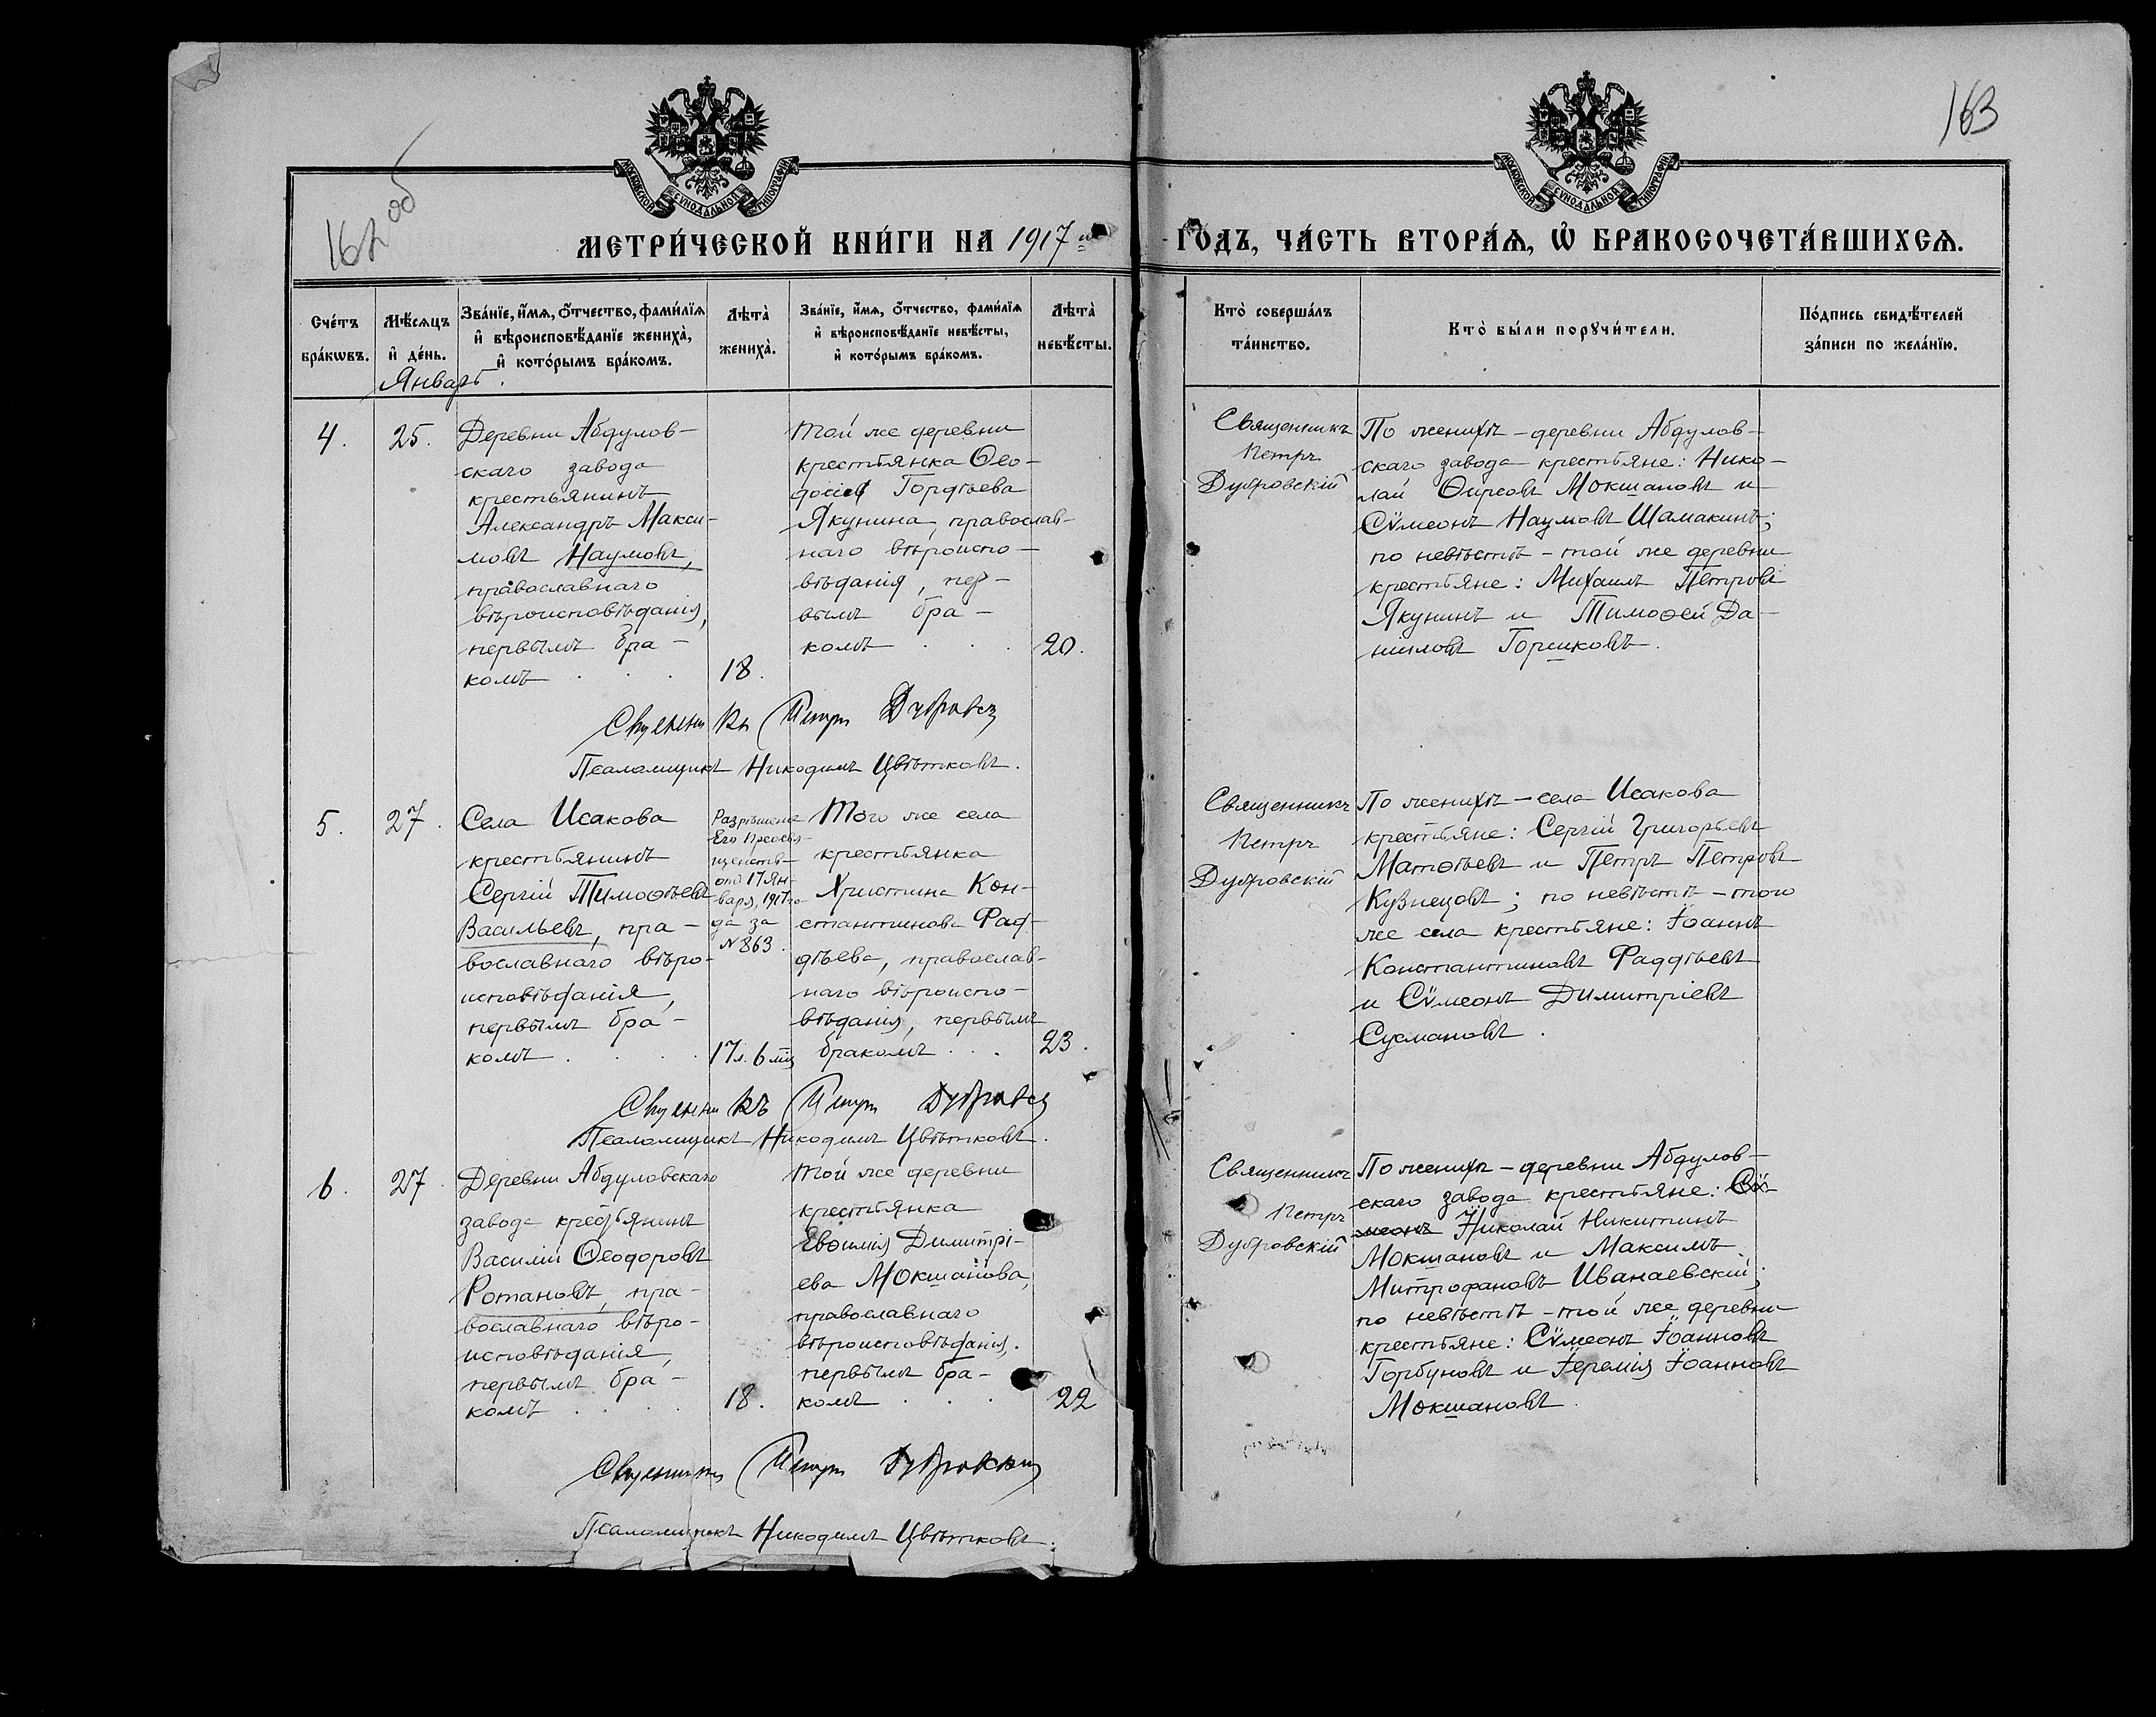 162 об
163
МОСКОВСКОЙ СѴНОДАЛЬНОЙ ТИПОГРАФІИ
МОСКОВСКОЙ СѴНОДАЛЬНОЙ ТИПОГРАФІИ
МЕТРИ́ЧЕСКОЙ КНИ́ГИ НА 1917 й
ГОДЪ, ЧА́СТЬ ВТОРА́Ѧ, Ѽ БРАКОСОЧЕТА́ВШИХСѦ.
Сче́тъ
бра́кѡвъ.
Мѣ́сѧцъ
и҆ де́нь.
Зва́нїе, и҆́мѧ, ѻ҆́тчество, фами́лїѧ
и҆ вѣроисповѣ́данїе жениха̀,
и҆ кото́рымъ бра́комъ.
Лѣта̀
жениха̀.
Зва́нїе, и҆́мѧ, ѻ҆́тчество, фами́лїѧ
и҆ вѣроисповѣ́данїе невѣ́сты,
и҆ кото́рымъ бра́комъ.
Лѣта̀
невѣ́сты.
Кто̀ соверша́лъ
та́инство.
Кто̀ бы́ли порꙋчи́тели.
По́дпись свидѣ́телей
за́писи по жела́нїю.
Январь.
4.
25.
Деревни Абдулов-
скаго завода
крестьянинъ
Александръ Макси-
мовъ Наумовъ,
православнаго
вѣроисповѣданія,
первымъ бра-
комъ . . .
18.
Той же деревни
крестьянка Ѳео-
досія Гордѣева
Якунина, православ-
наго вѣроиспо-
вѣданія, пер-
вымъ бра-
комъ . . .
20.
Священникъ
Петръ
Дубровскій
По женихѣ - деревни Абдулов-
скаго завода крестьяне: Нико-
лай Ѳирсовъ Мокшановъ и
Сѵмеонъ Наумовъ Шамакинъ;
по невѣстѣ - той же деревни
крестьяне: Михаилъ Петровъ
Якунинъ и Тимоѳей Да-
ниловъ Горшковъ.
Священникъ Петръ Дубровскій
Псаломщикъ Никодимъ Цвѣтковъ.
5.
27.
Села Исакова
крестьянинъ
Сергій Тимоѳѣевъ
Васильевъ, пра-
вославнаго вѣро-
исповѣданія,
первымъ бра-
комъ . . . .
Разрѣшено
Его Преосвя-
щенств-
отъ 17 Ян-
варя, 1917 го-
да за
№ 863.
17 л. 6 мц
Того же села
крестьянка
Христина Кон-
стантинова Фад-
дѣева, православ-
наго вѣроиспо-
вѣданія, первымъ
бракомъ . . .
23.
Священникъ
Петръ
Дубровскій
По женихѣ - села Исакова
крестьяне: Сергій Григорьевъ
Матѳѣевъ и Петръ Петровъ
Кузнецовъ; по невѣстѣ - того
же села крестьяне: Іоаннъ
Константиновъ Фаддѣевъ
и Сѵмеонъ Димитріевъ
Сусмановъ.
Священникъ Петръ Дубровскій
Псаломщикъ Никодимъ Цвѣтковъ.
6.
27.
Деревни Абдуловскаго
завода крестьянинъ
Василій Ѳеодоровъ
Романовъ, пра-
вославнаго вѣро-
исповѣданія,
первымъ бра-
комъ . . . .
18.
Той же деревни
крестьянка
Евѳимія Димитрі-
ева Мокшанова,
православнаго
вѣроисповѣданія,
первымъ бра-
комъ . . .
22
Священникъ
Петръ
Дубровскій
По женихѣ - деревни Абдулов-
скаго завода крестьяне: Сѵ-
меонъ Николай Никитинъ
Мокшановъ и Максимъ
Митрофановъ Иванаевскій;
по невѣстѣ - той же деревни
крестьяне: Сѵмеонъ Іоанновъ
Горбуновъ и Іеремія Іоанновъ
Мокшановъ.
Священникъ Петръ Дубровскій
Псаломщикъ Никодимъ Цвѣтковъ.